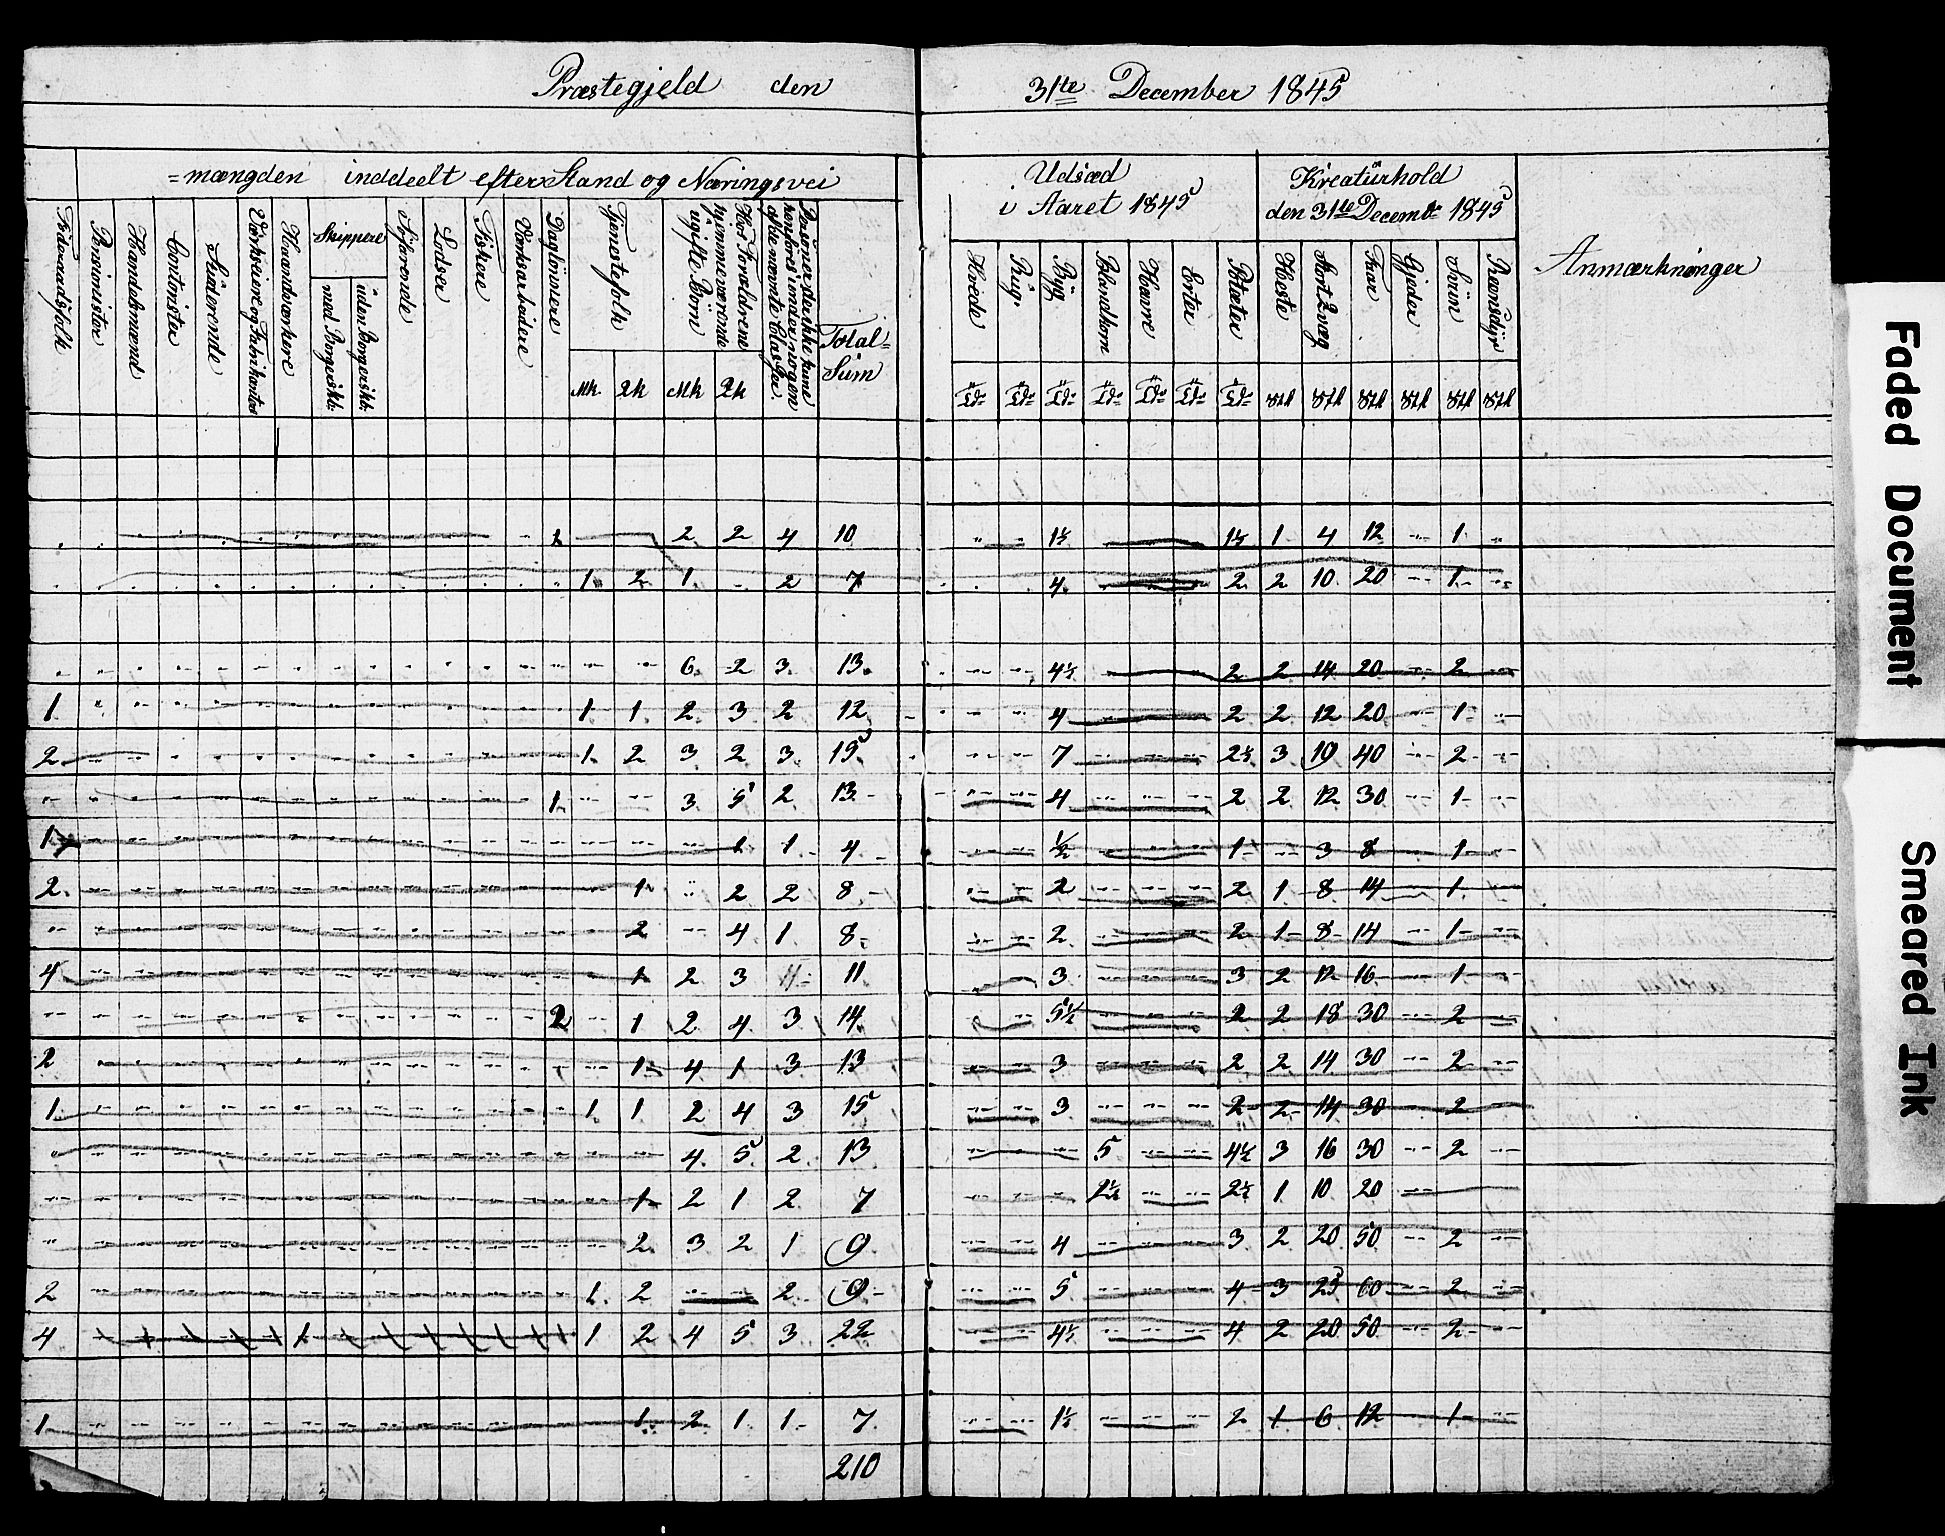 Præstegjeld den 31te December 1845
=mængden inddeelt efter Stand og Næringsvei
Udsæd i Aaret 1845
Kreaturhold den 31te Decembr 1845
Anmærkninger
Föderaadsfolk
Pensionister
Handelsmænd
Contorister
Studerende
Værkseiere og Fabrikanter
Haandværkere
Skippere
med Borgerskb.
uden Borgerskb.
Söfarende
Lodser
Fiskere
Værksarbeidere
Daglönnere
Tjenestefolk
Mk. Qk
Hos Forældrene hjemmeværende ugifte Börn
Mk Qk
Personer der ikke kunne henföres under nogen af de nævnte Classer.
Total-Sum
Hvede
Rug.
Byg
Blandkorn
Havre
Erter
Potæter
Heste
Stort Qvæg
Faar
Gjeder
Sviin
Reensdyr
1 2 2 4 10 1½ 1½ 1 4 12 1
1 2 1 2 7 4 2 2 10 20 1
6 2 3 13 4½ 2 2 14 20 2
1 1 1 2 3 2 12 4 2 2 12 20 1
2 1 2 3 2 3 15 7 2½ 3 19 40 2
1 3 5 2 13 4 2 2 12 30 1
1 1 1 4 ½ 1 3 8 1
2 1 2 2 8 2 2 1 8 14 1
2 4 1 8 2 2 1 8 14 1
4 1 2 3 11 3 3 2 12 16 1
2 1 2 4 3 14 5½ 2 2 18 30 2
2 1 4 1 3 13 3 2 2 14 30 2
1 1 1 2 4 3 15 3 2 2 14 30 2
4 5 2 13 5 4½ 3 16 30 2
1 2 1 2 7 2½ 2½ 1 10 20
2 3 2 1 9 4 3 2 20 50 2
2 1 2 2 9 5 4 3 25 60 2
4 1 1 1 2 4 5 3 22 4½ 4 2 20 50 2
1 1 2 1 1 7 1½ 2 1 6 12 1
210
Faded Document
Smeared Ink